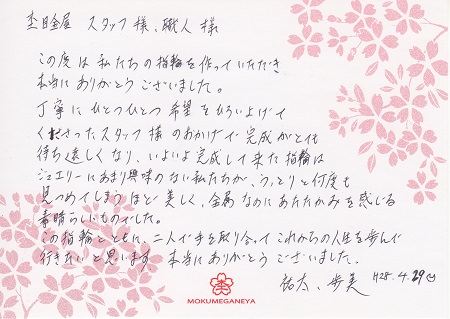 杢目金屋 スタッフ様、職人様
この度は私たちの指輪を作っていただき
本当にありがとうございました。
丁寧にひとつひとつ希望をひろいあげて
くださったスタッフ様のおかげで完成がとても
待ち遠しくなり、いよいよ完成して来た指輪は
ジュエリーにあまり興味のない私たちが、うっとりと何度も
見つめてしまうほど美しく、金属なのにあたたかみを感じる
素晴らしいものでした。
この指輪とともに、二人で手を取り合ってこれからの人生を歩んで
行きたいと思います。本当にありがとうございました。
祐太、歩美 H28.4.29
MOKUMEGANEYA